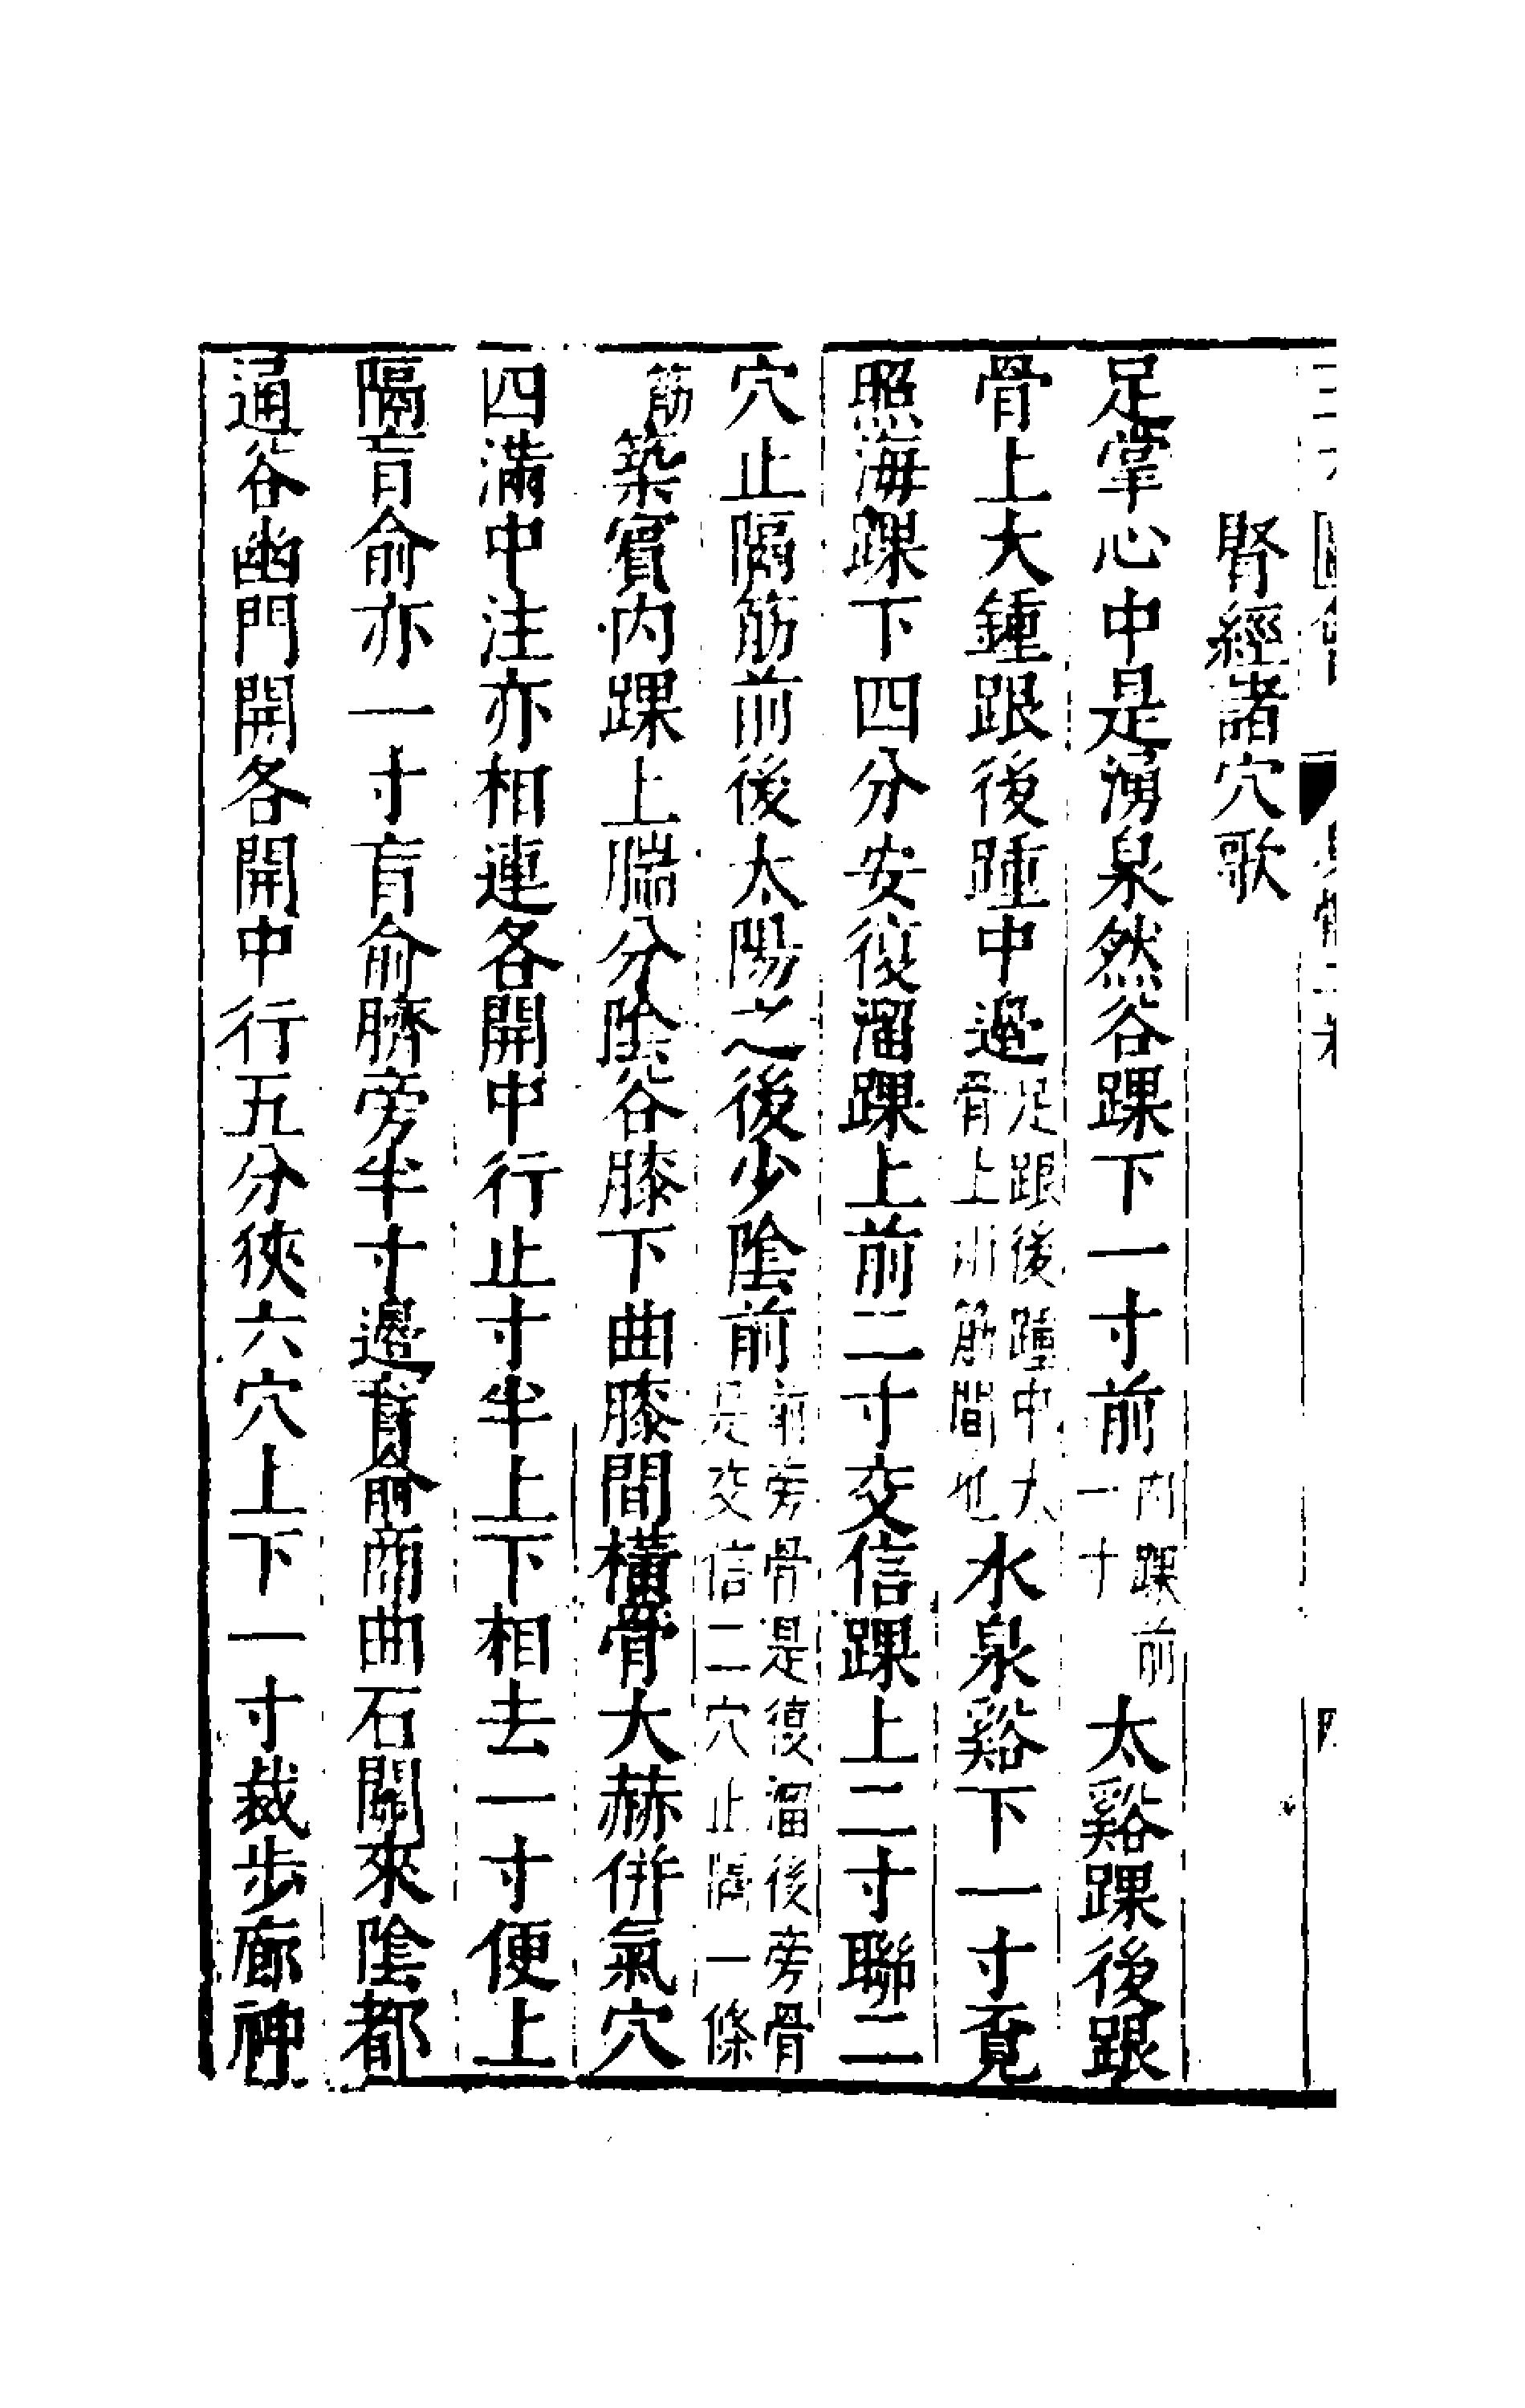 腎經諸穴歌
足掌心中是湧泉然谷踝下一寸前内踝前一寸太谿踝後跟
骨上大鍾跟後踵中邊足跟後踵中大骨上兩筋間也水泉谿下一寸覔
照海踝下四分安復溜踝上前二寸交信踝上二寸聯二
穴止隔筋前後太陽之後少陰前前旁骨是復溜後旁骨是交信二穴止隔一條
筋築賓内踝上腨分陰谷膝下曲膝間橫骨大赫併氣穴
四滿中注亦相連各開中行止寸半上下相去一寸便上
隔肓俞亦一寸肓俞臍旁半寸邊肓俞商曲石關來陰都
通谷幽門開各開中行五分狹六穴上下一寸裁步廊神